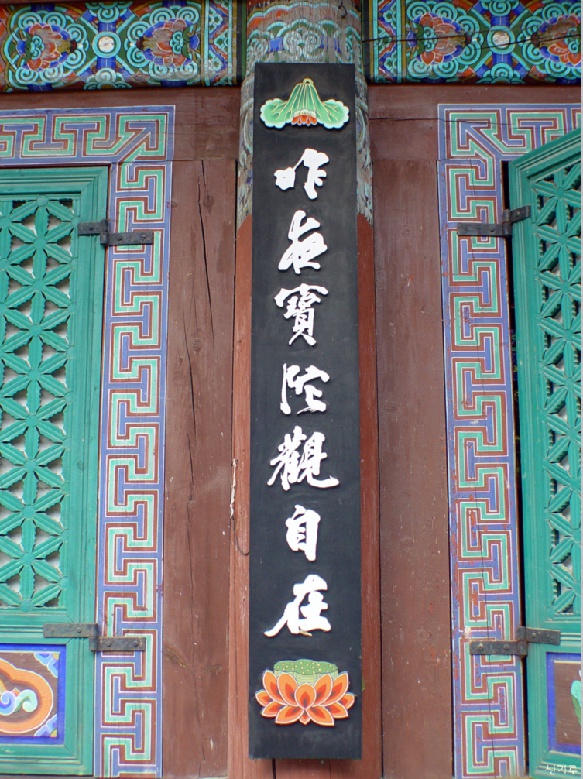 昨夜寶陀觀自在